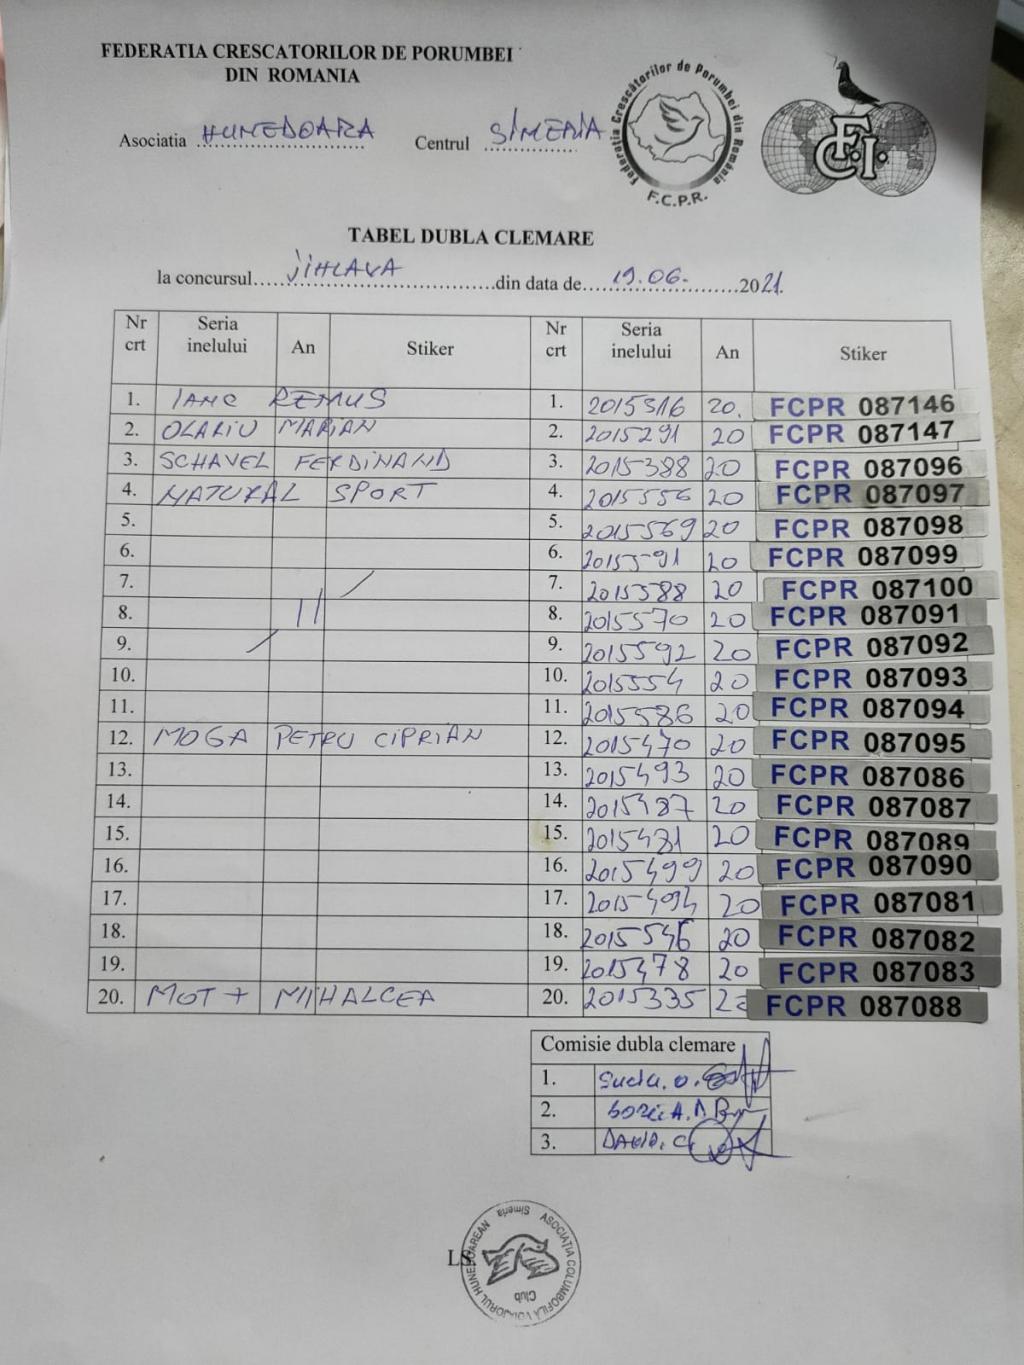 FEDERATIA CRESCATORILOR DE PORUMBEI
DIN ROMANIA
Asociatia HUNEDOARA Centrul SIMERIA
Federatia Crescătorilor de Porumbei din România
F.C.P.R.
F.C.I.
TABEL DUBLA CLEMARE
la concursul JIHLAVA din data de 19.06. 2021.
Nr crt Seria inelului An Stiker Nr crt Seria inelului An Stiker
1. IANC REMUS 1. 2015316 20. FCPR 087146
2. OLARIU MARIAN 2. 2015291 20 FCPR 087147
3. SCHAVEL FERDINAND 3. 2015388 20 FCPR 087096
4. NATURAL SPORT 4. 2015556 20 FCPR 087097
5. 5. 2015569 20 FCPR 087098
6. 6. 2015591 20 FCPR 087099
7. 7. 2015588 20 FCPR 087100
8. 11 8. 2015570 20 FCPR 087091
9. 9. 2015592 20 FCPR 087092
10. 10. 2015554 20 FCPR 087093
11. 11. 2015586 20 FCPR 087094
12. MOGA PETRU CIPRIAN 12. 2015470 20 FCPR 087095
13. 13. 2015493 20 FCPR 087086
14. 14. 2015487 20 FCPR 087087
15. 15. 2015481 20 FCPR 087089
16. 16. 2015499 20 FCPR 087090
17. 17. 2015494 20 FCPR 087081
18. 18. 2015546 20 FCPR 087082
19. 19. 2015478 20 FCPR 087083
20. MOT + MIHALCEA 20. 2015335 20 FCPR 087088
Comisie dubla clemare
1.
2.
3. DAVID. C
LS
ASOCIAȚIA COLUMBOFILĂ VOIAJORUL HUNEDOREAN
Simeria
Club